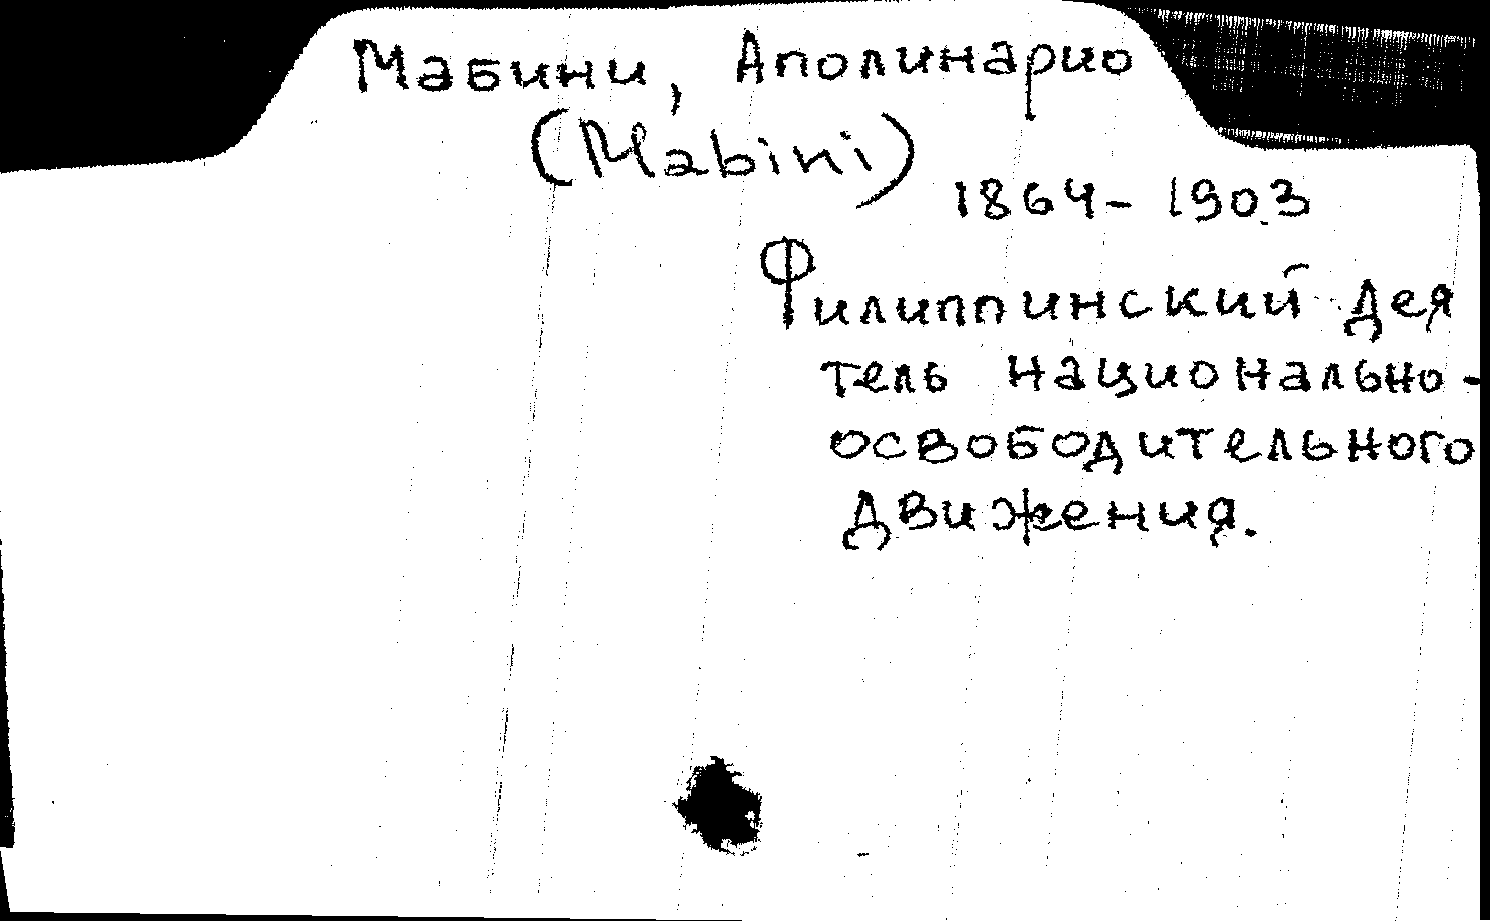 Мабини, Аполинарио
(Mabini)
1864-1903
Филиппинский дея
тель национально-
освободительного
движения.